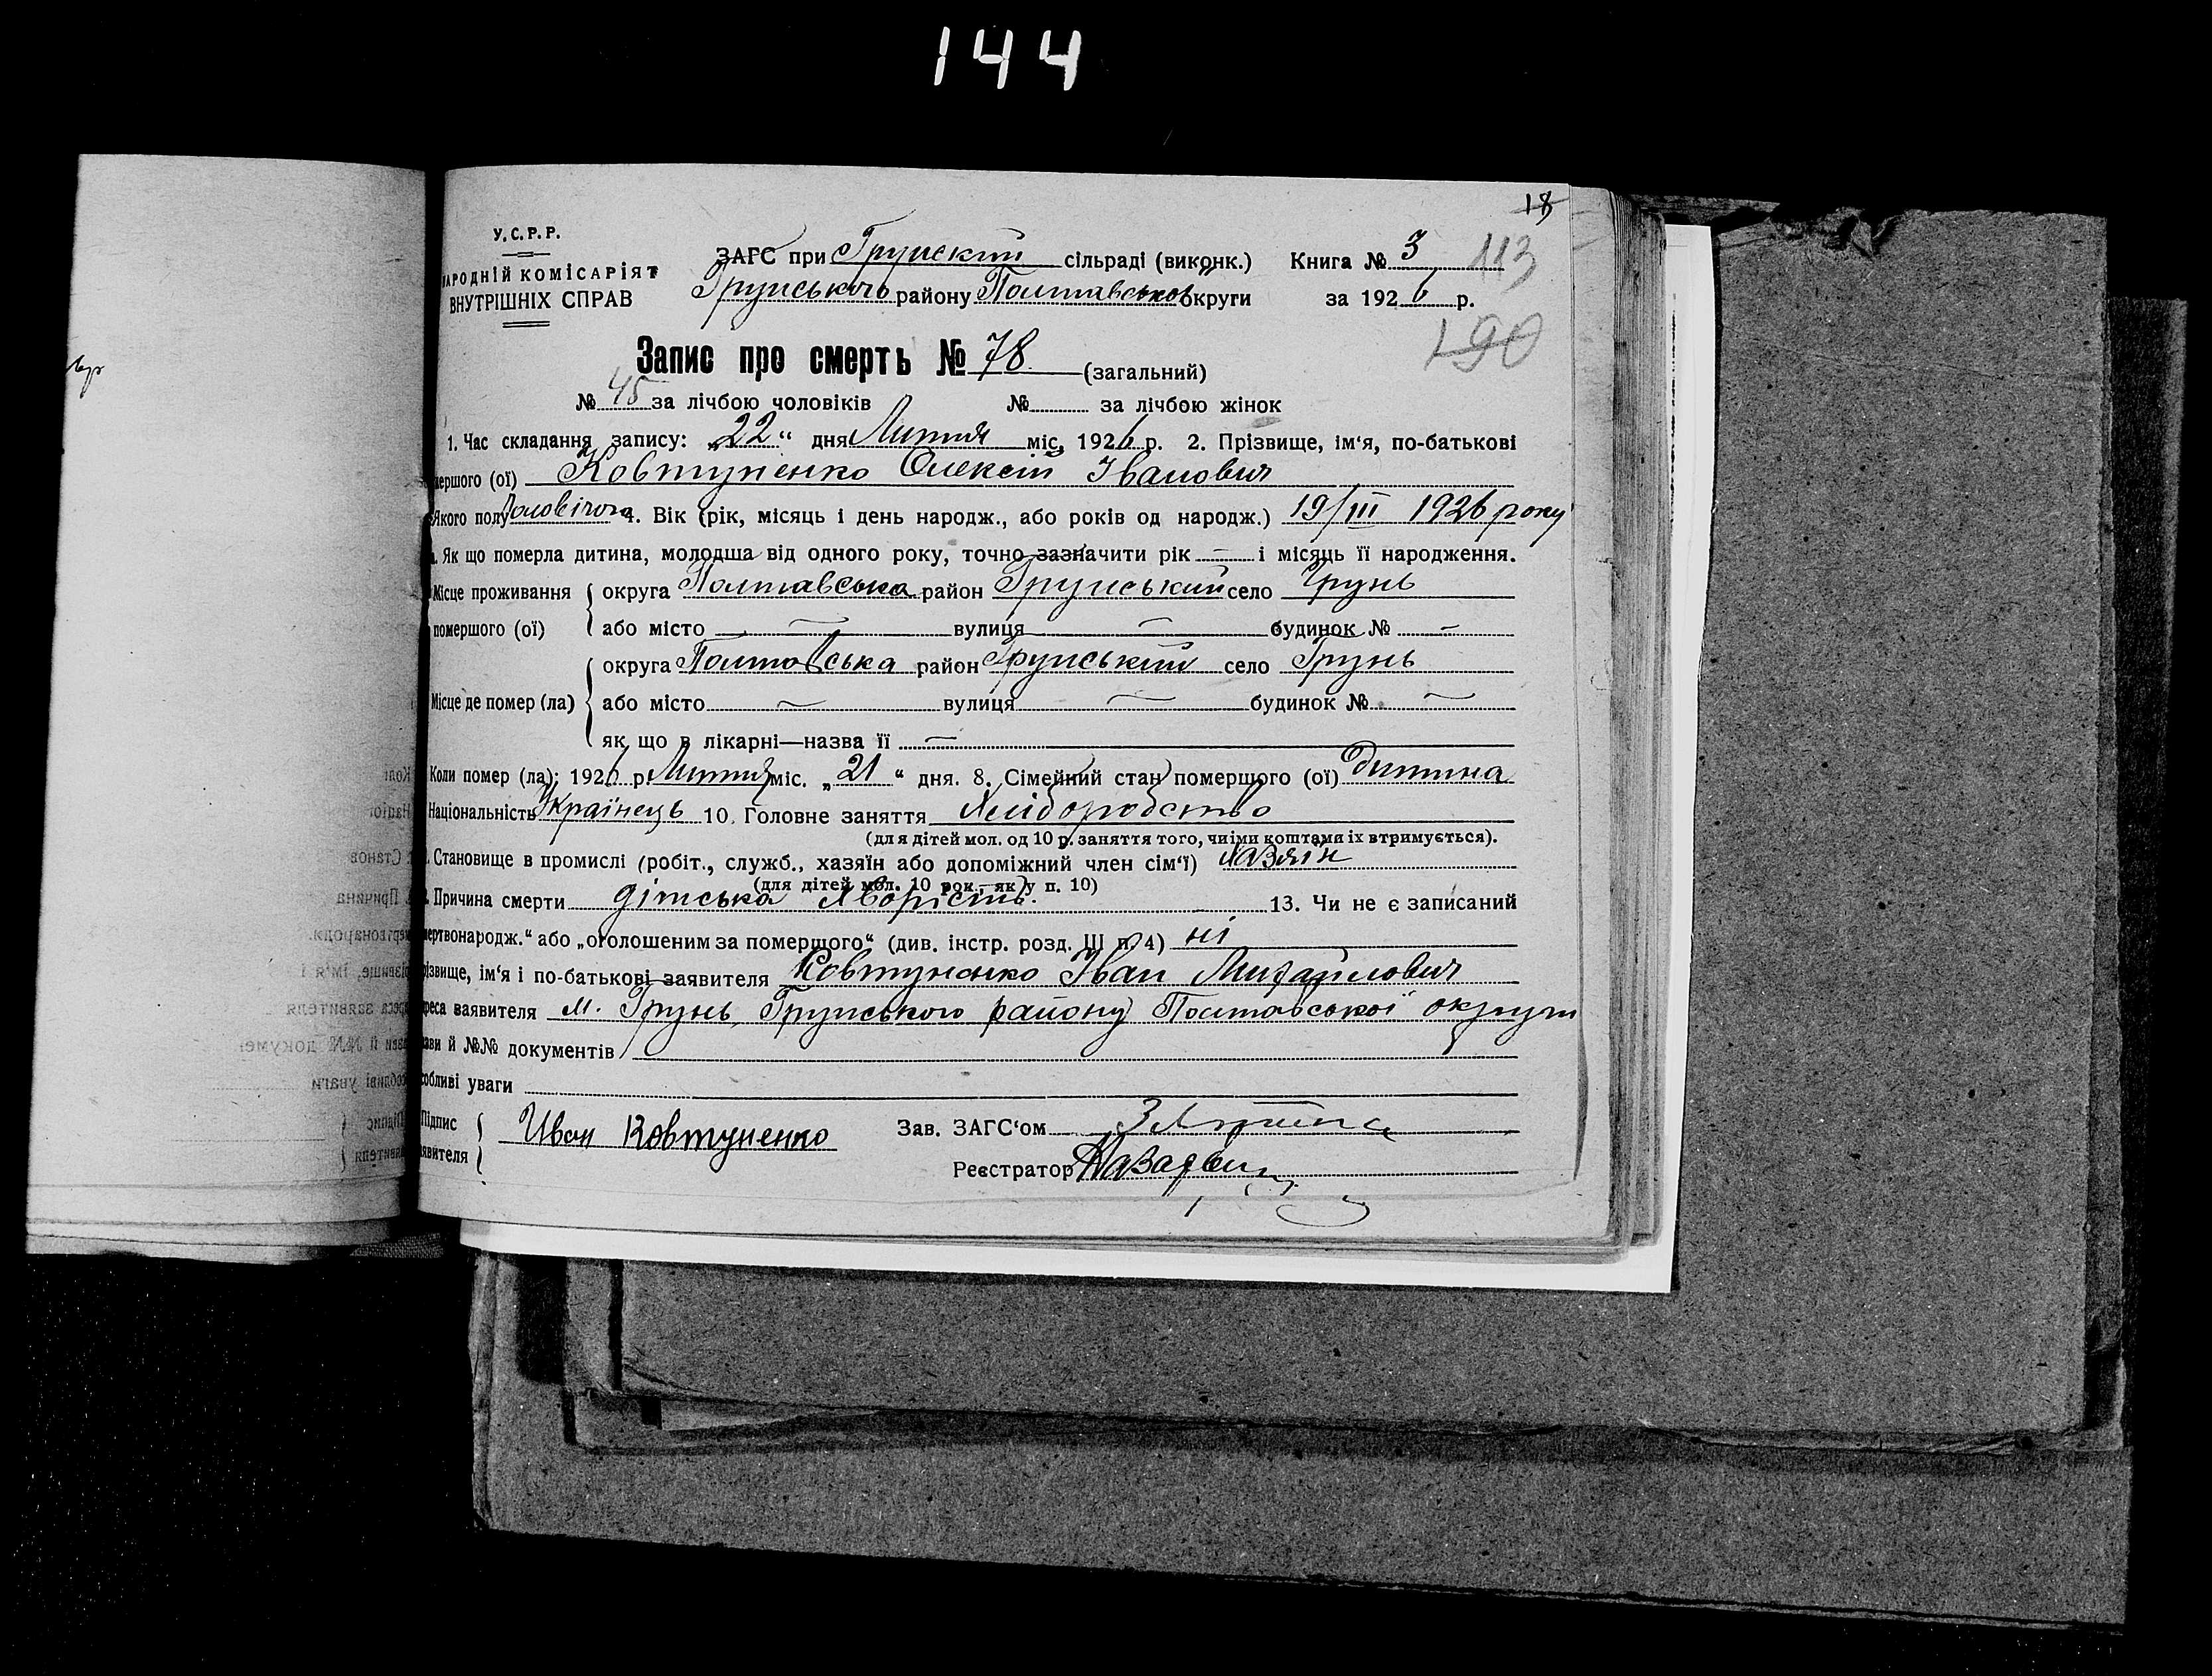 144
18
У.С.Р.Р.
НАРОДНІЙ КОМІСАРІЯТ
ВНУТРІШНІХ СПРАВ
ЗАГС при Грунский сільраді (виконк.) Книга № 3 113
Грунського району Полтавської округи за 1926 р.
190
Запис про смерть № 78 (загальний)
№ 45 за лічбою чоловіків № за лічбою жінок
1. Час складання запису: „22“ дня Липня міс. 1926 р. 2. Прізвище, ім‘я, по-батькові
мершого (ої) Ковтуненко Олексій Іванович
Якого полу Чоловічого 4. Вік (рік, місяць і день народж., або років од народж.) 19/III 1926 року
. Як що померла дитина, молодша від одного року, точно зазначити рік — і місяць її народження.
Місце проживання округа Полтавська район Грунський село Грунь
помершого (ої) або місто — вулиця — будинок № —
округа Полтавська район Грунський село Грунь
Місце де помер (ла) або місто — вулиця — будинок № —
як що в лікарні—назва її —
Коли помер (ла): 1926 р. Липня міс. „21“ дня. 8. Сімейний стан помершого (ої) дитина
Національність Українець 10. Головне заняття Хліборобство
(для дітей мол. од 10 р. заняття того, чиїми коштами їх втримується).
. Становище в промислі (робіт., служб., хазяїн або допоміжний член сім‘ї) хазяїн
(для дітей мол. 10 рок., як у п. 10)
2. Причина смерти дітська хворість. 13. Чи не є записаний
мертвонародж.“ або „оголошеним за помершого“ (див. інстр. розд. III п. 4) ні
різвище, ім‘я і по-батькові заявителя Ковтуненко Іван Михайлович
реса заявителя м. Грунь, Грунського району Полтавської округи
зви й №№ документів
собливі уваги
Підпис Иван Ковтуненко Зав. ЗАГС‘ом
заявителя Реєстратор